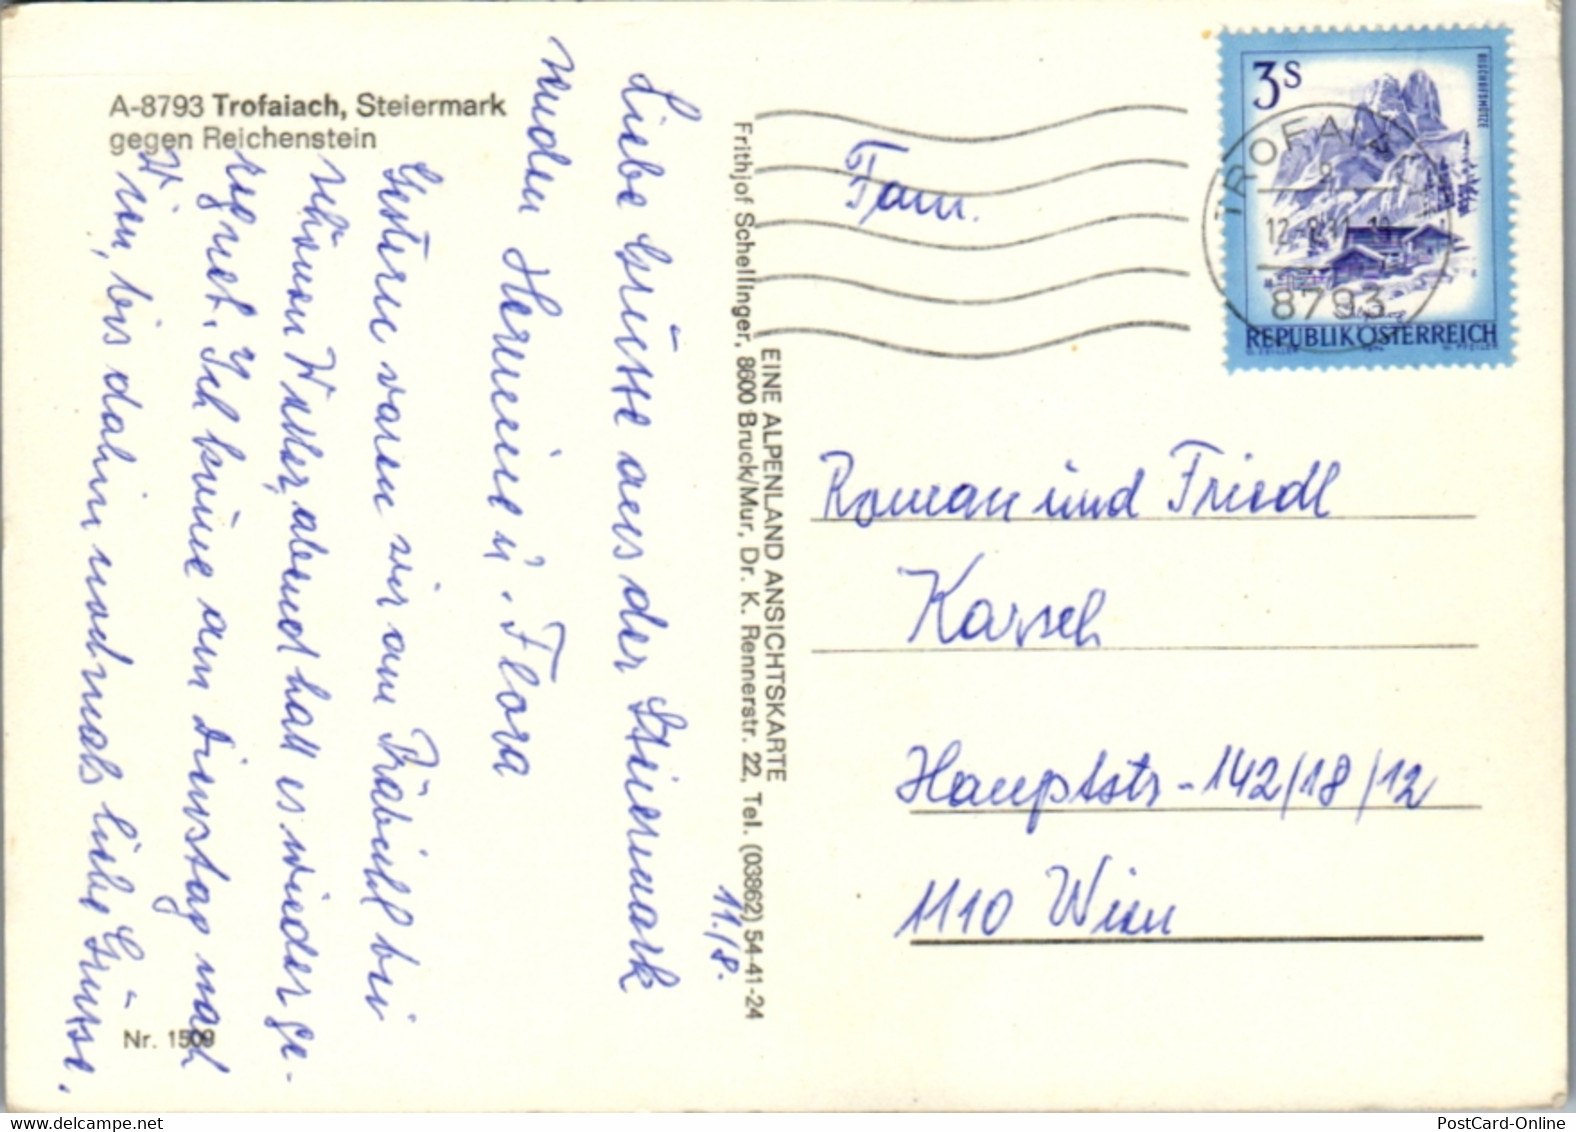 A-8793 Trofaiach, Steiermark
gegen Reichenstein
11./8.
Liebe Grüsse aus der Steiermark
senden Hermine u. Flora
Gestern waren wir am Präbichl bei
schönen Wetter, abend hat es wieder ge-
regnet. Ich komme am Dienstag nach
Wien, bis dahin nochmals liebe Grüsse.
Nr. 1509
EINE ALPENLAND ANSICHTSKARTE
Frithjof Schellinger, 8600 Bruck/Mur, Dr. K. Rennerstr. 22, Tel. (03862) 54-41-24
3S
BISCHOFSMÜTZE
REPUBLIK ÖSTERREICH
TROFAIA
8793
Fam.
Roman und Friedl
Karsch
Hauptstr. 142/18/12
1110 Wien
PostCard-Online